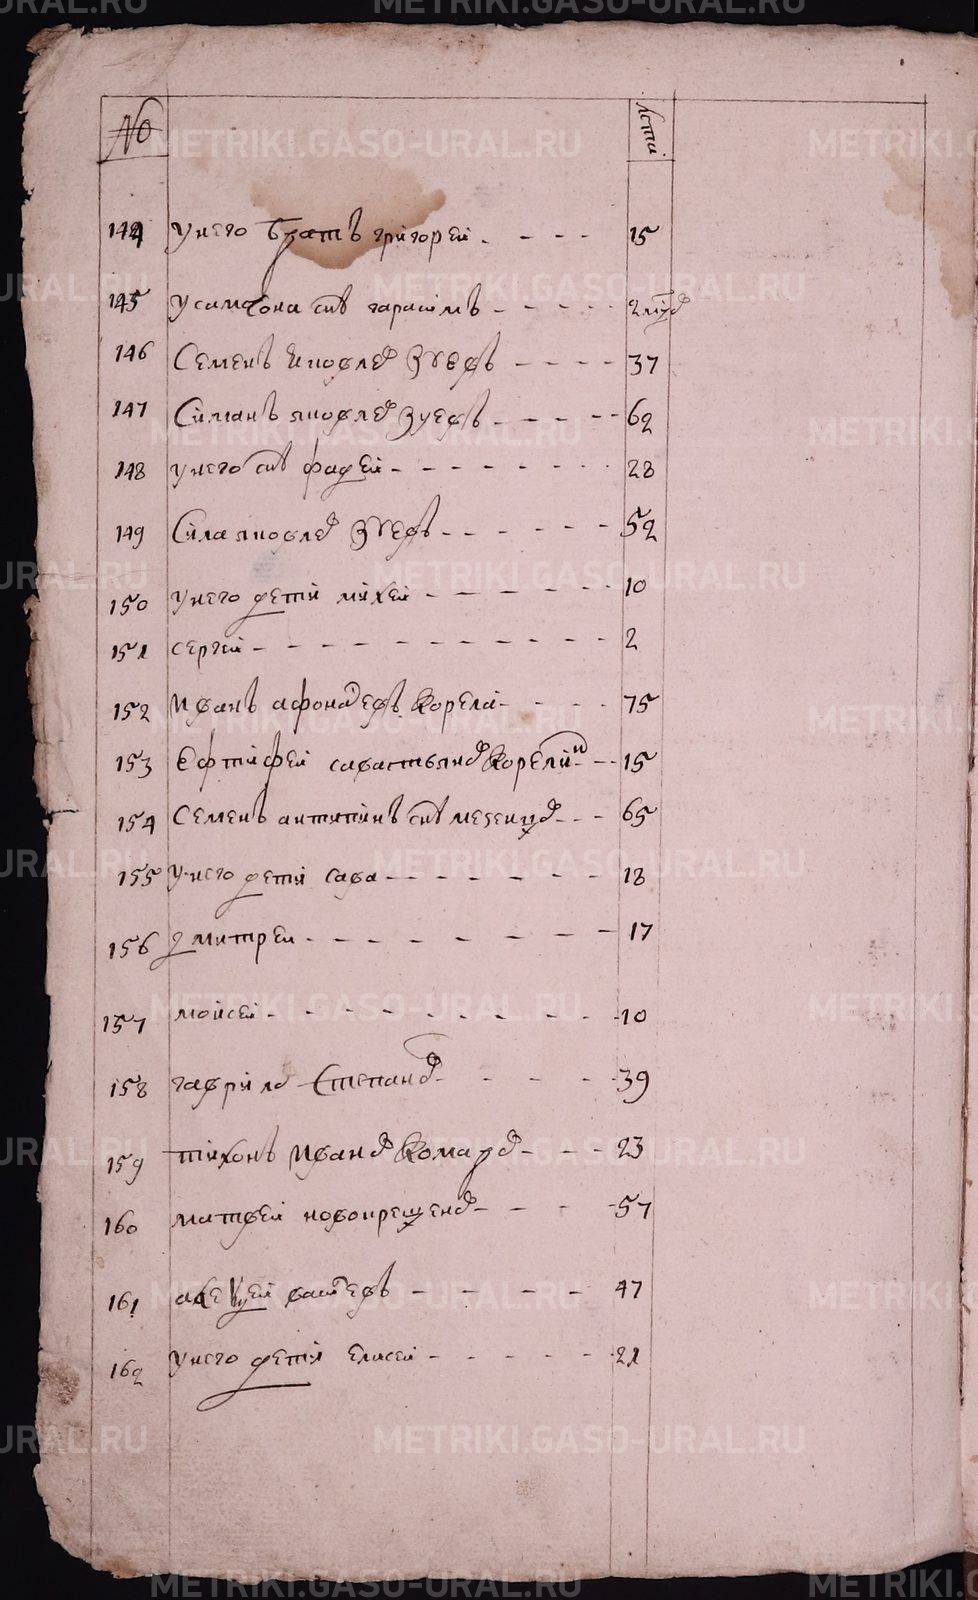 № лета
144 унего братъ григореи 15
145 усамсона снъ гарасимъ 2
146 Семенъ Яковлев Зуевъ 37
147 Симанъ яковлев Зуевъ 62
148 унего снъ фадеи 28
149 Сила яковлев Зуевъ 52
150 унего дети михеи 10
151 сергеи 2
152 Иванъ афонасевъ Корела 75
153 Евтифеи савастьянов Корелин 15
154 Семенъ антипинъ снъ мезенцов 65
155 унего дети сава 18
156 дмитреи 17
157 моисеи 10
158 гаврило Степанов 39
159 тихонъ Иванов Комаров 23
160 матвеи новокрещенов 57
161 47
162 унего дети елисеи 21
METRIKI.GASO-URAL.RU